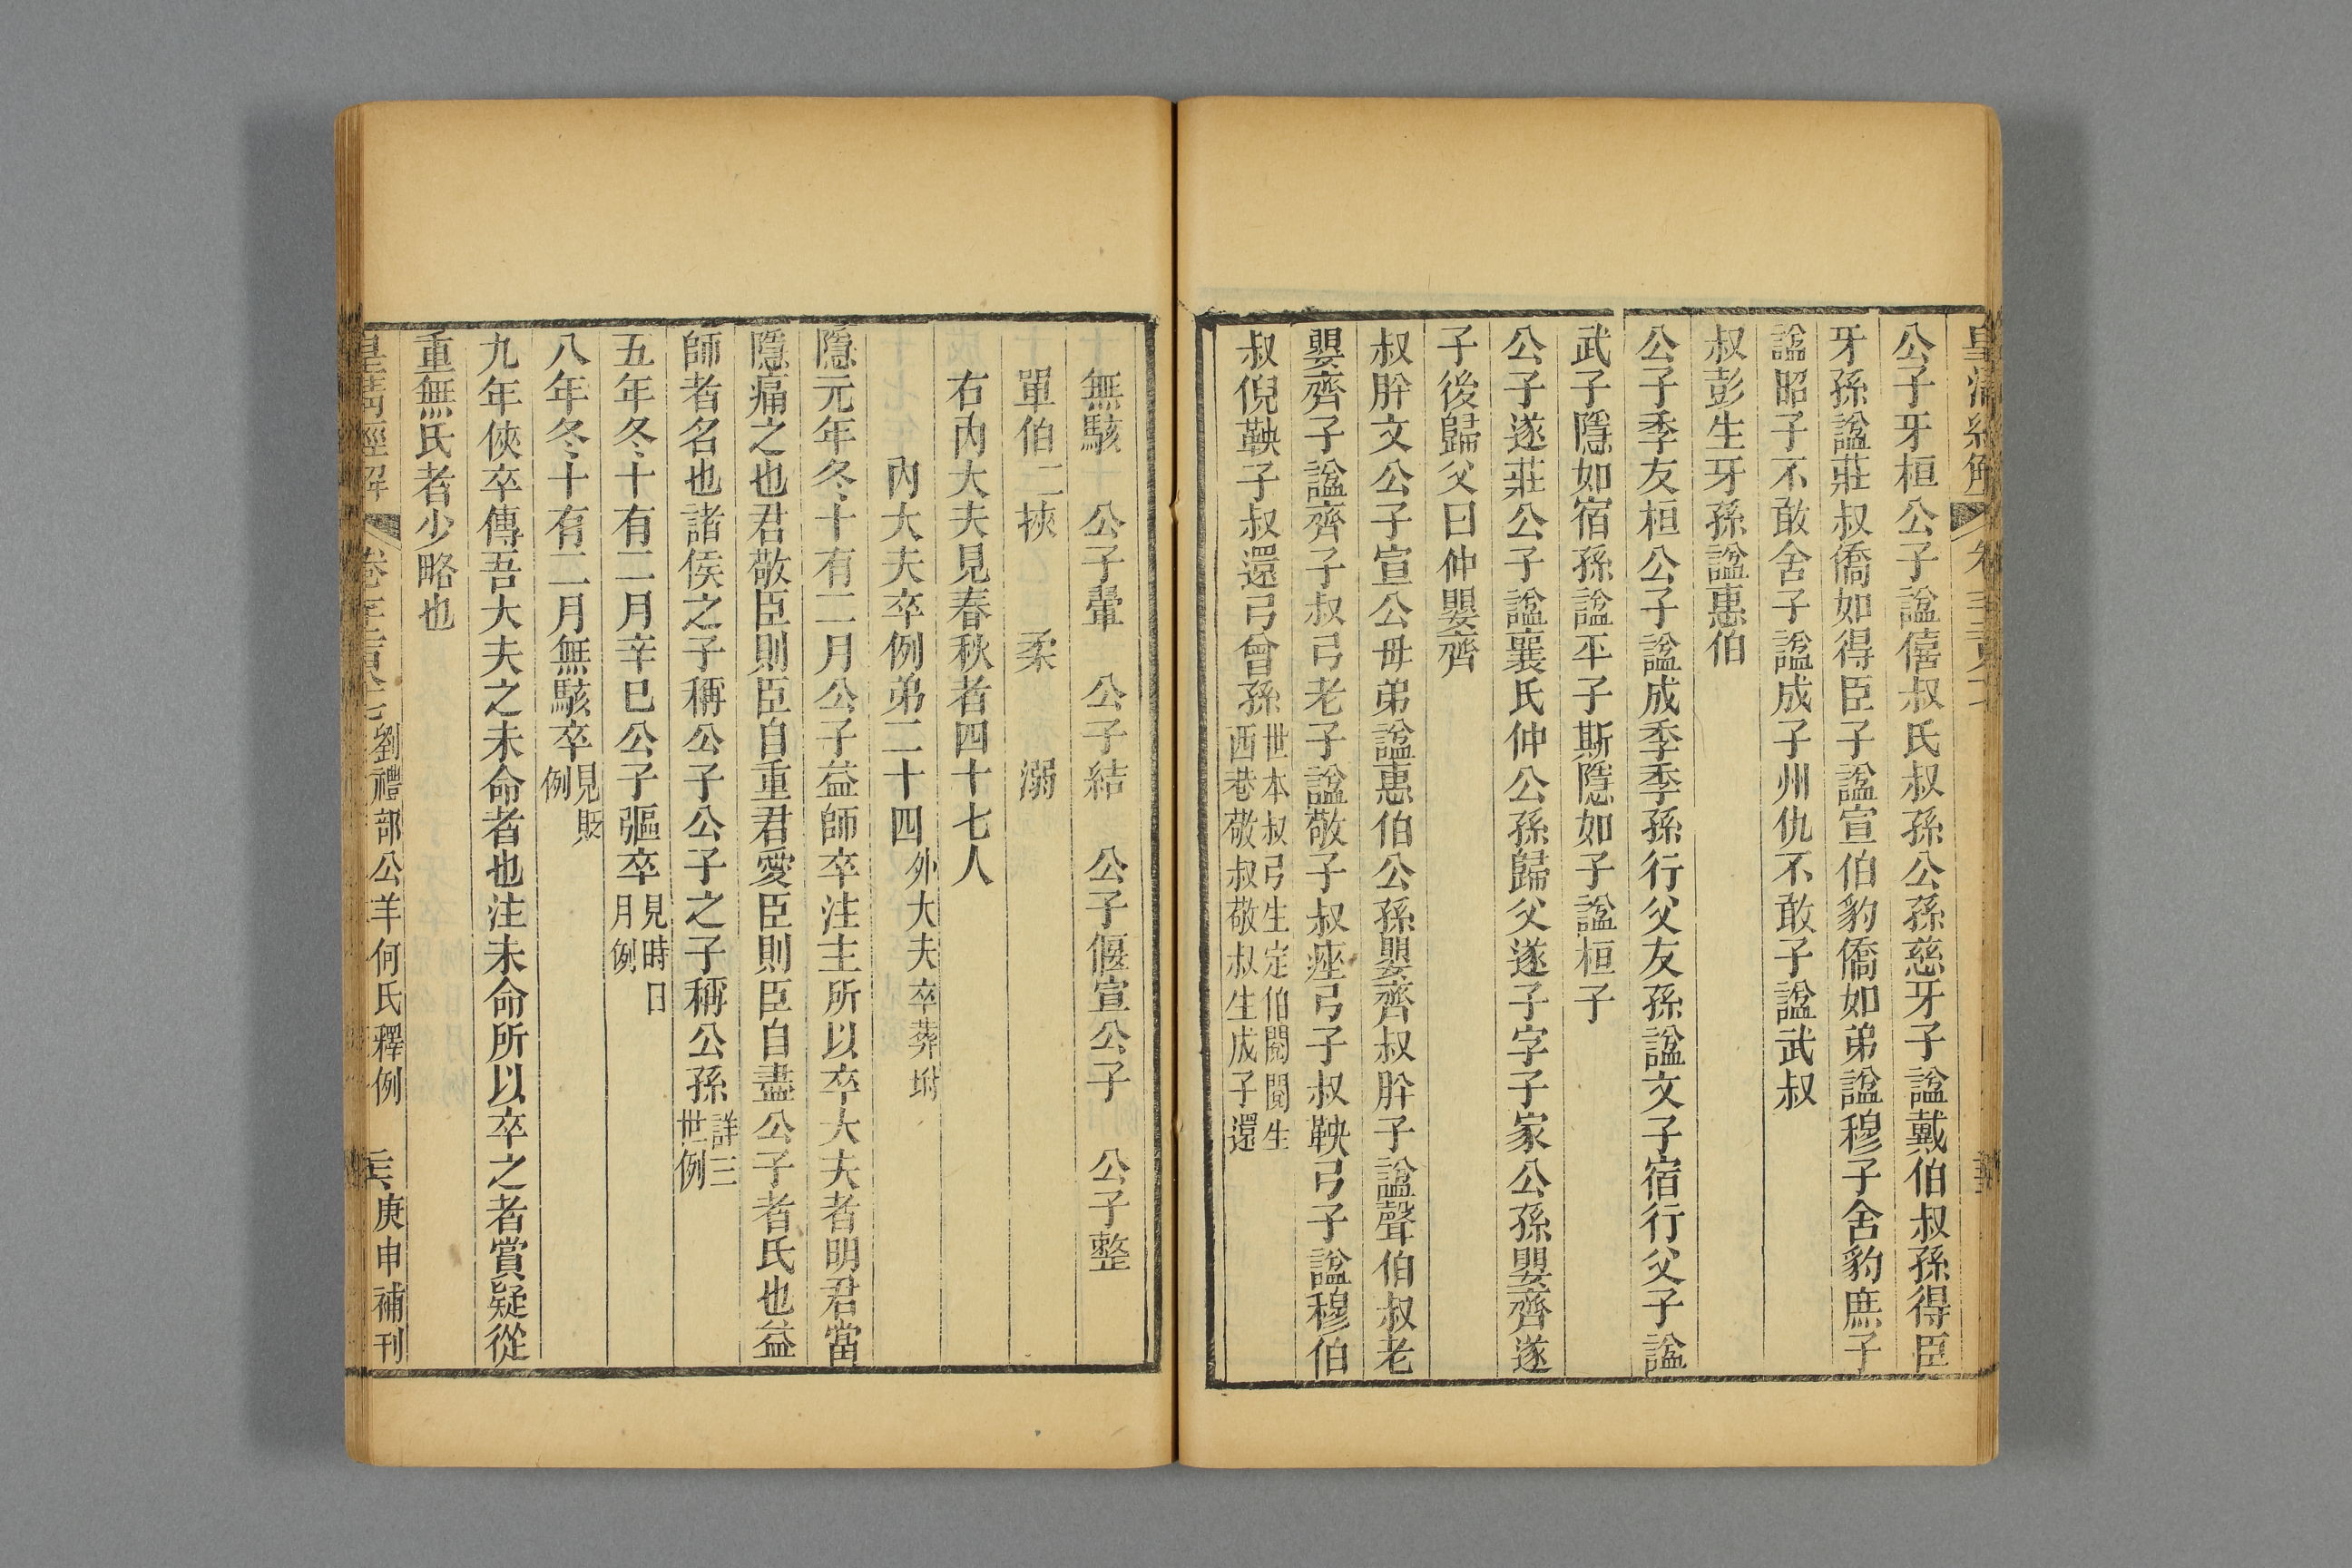 公子牙桓公子諡僖叔氏叔孫公孫慈牙子諡戴伯叔孫得臣
牙孫諡莊叔僑如得臣子諡宣伯豹僑如弟諡穆子舍豹庶子
諡昭子不敢舍子諡成子州仇不敢子諡武叔
叔彭生牙孫諡惠伯
公子季友桓公子諡成季季孫行父友孫諡文子宿行父子諡
武子隱如宿孫諡平子斯隱如子諡桓子
公子遂莊公子諡襄氏仲公孫歸父遂子字子家公孫嬰齊遂
子後歸父曰仲嬰齊
叔肸文公子宣公母弟諡惠伯公孫嬰齊叔肸子諡聲伯叔老
嬰齊子諡齊子叔弓老子諡敬子叔痤弓子叔鞅弓子諡穆伯
叔倪鞅子叔還弓曾孫世本叔弓生定伯閱閱生西巷敬叔敬叔生成子還
無駭 公子翬 公子結 公子偃宣公子 公子整
單伯二挾 柔 溺
右內大夫見春秋者四十七人
內大夫卒例弟二十四外大夫卒葬坿
隱元年冬十有二月公子益師卒注主所以卒大夫者明君當
隱痛之也君敬臣則臣自重君愛臣則臣自盡公子者氏也益
師者名也諸侯之子稱公子公子之子稱公孫詳三世例
五年冬十有二月辛巳公子彄卒見時日月例
八年冬十有二月無駭卒見貶例
九年俠卒傳吾大夫之未命者也注未命所以卒之者賞疑從
重無氏者少略也
皇清經解 劉禮部公羊何氏釋例 庚申補刊